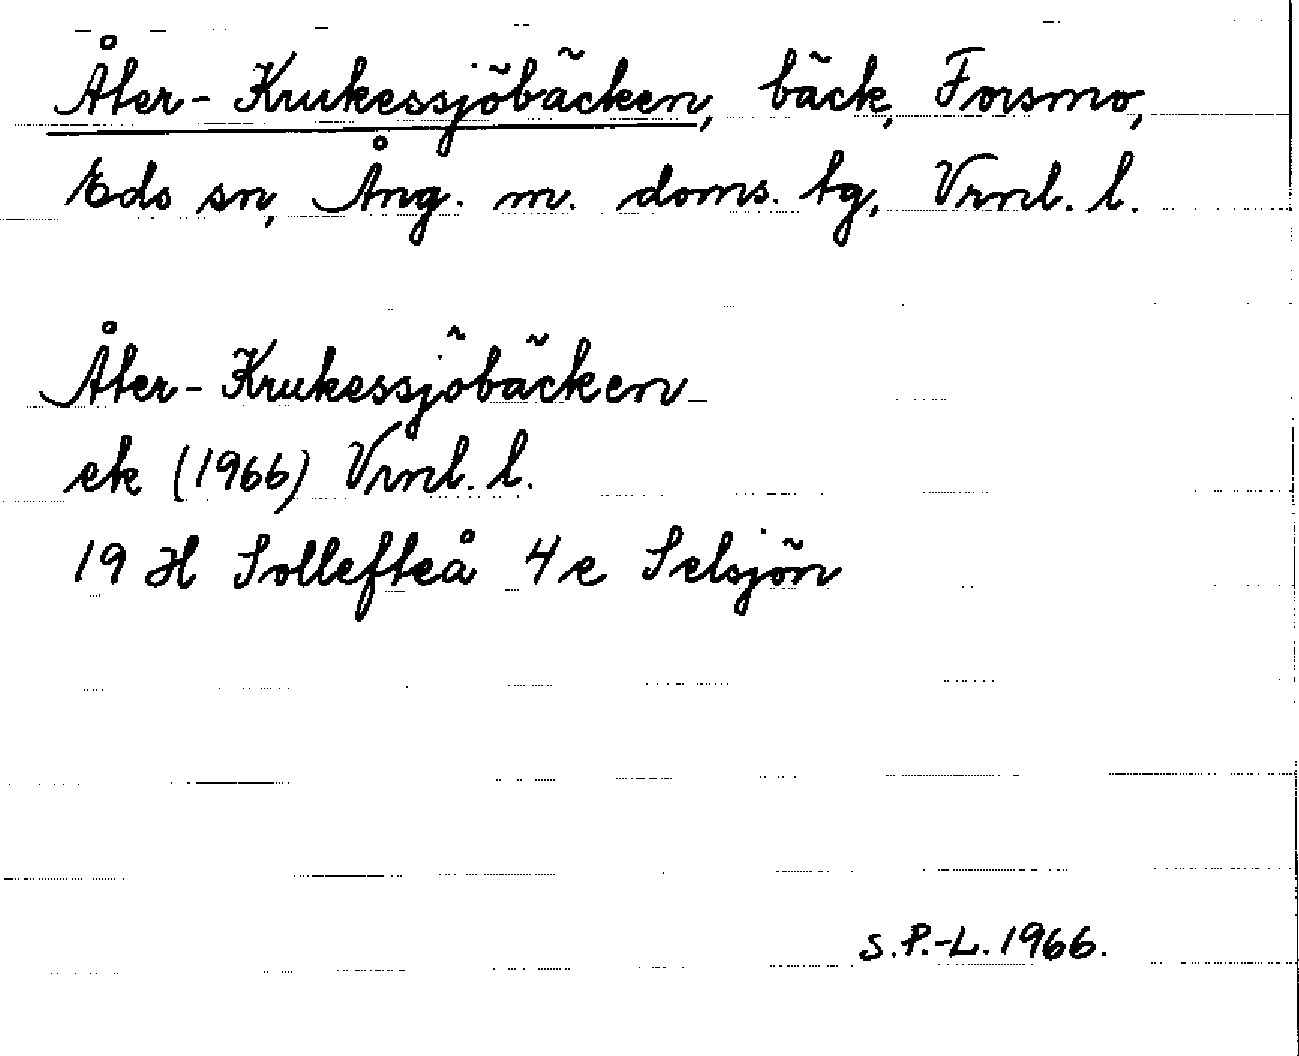 Åter-Krukessjöbäcken, bäck, Forsmo,
Eds sn, Ång. m. doms. tg, Vrnl. l.
Åter-Krukessjöbäcken
ek (1966) Vrnl. l.
19 H Sollefteå 4 e Selsjön
S.P.-L. 1966.